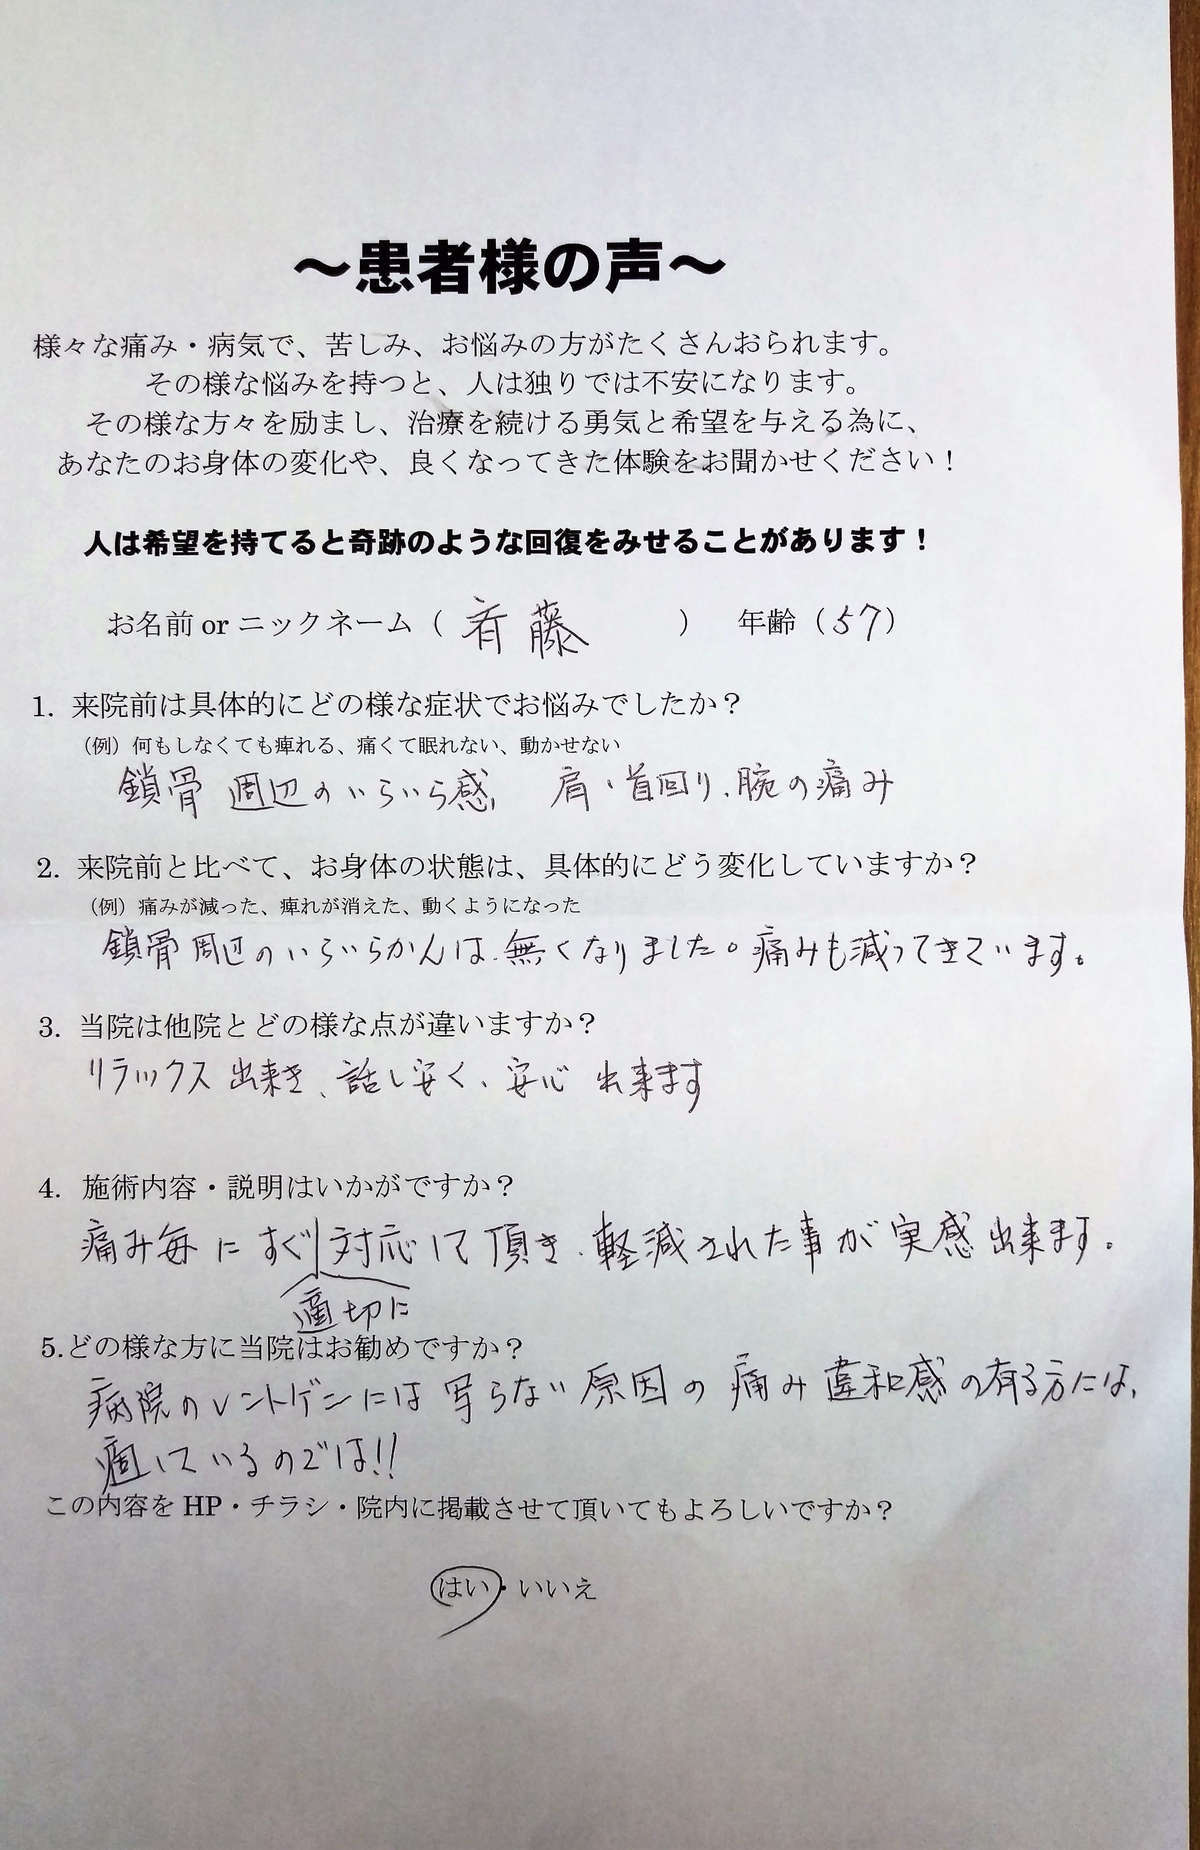 ～患者様の声～
様々な痛み・病気で、苦しみ、お悩みの方がたくさんおられます。
その様な悩みを持つと、人は独りでは不安になります。
その様な方々を励まし、治療を続ける勇気と希望を与える為に、
あなたのお身体の変化や、良くなってきた体験をお聞かせください！
人は希望を持てると奇跡のような回復をみせることがあります！
お名前 or ニックネーム（ 斉藤 ） 年齢（57）
1. 来院前は具体的にどの様な症状でお悩みでしたか？
（例）何もしなくても痺れる、痛くて眠れない、動かせない
鎖骨 周辺のいらいら感、 肩・首回り、腕の痛み
2. 来院前と比べて、お身体の状態は、具体的にどう変化していますか？
（例）痛みが減った、痺れが消えた、動くようになった
鎖骨周辺のいらいらかんは、無くなりました。痛みも減ってきています。
3. 当院は他院とどの様な点が違いますか？
リラックス出来き、話し安く、安心 出来ます
4. 施術内容・説明はいかがですか？
痛み毎にすぐ対応して頂き、軽減された事が実感出来ます。
適切に
5.どの様な方に当院はお勧めですか？
病院のレントゲンには写らない原因の痛み違和感の有る方には、
適しているのでは!!
この内容を HP・チラシ・院内に掲載させて頂いてもよろしいですか？
はい・いいえ